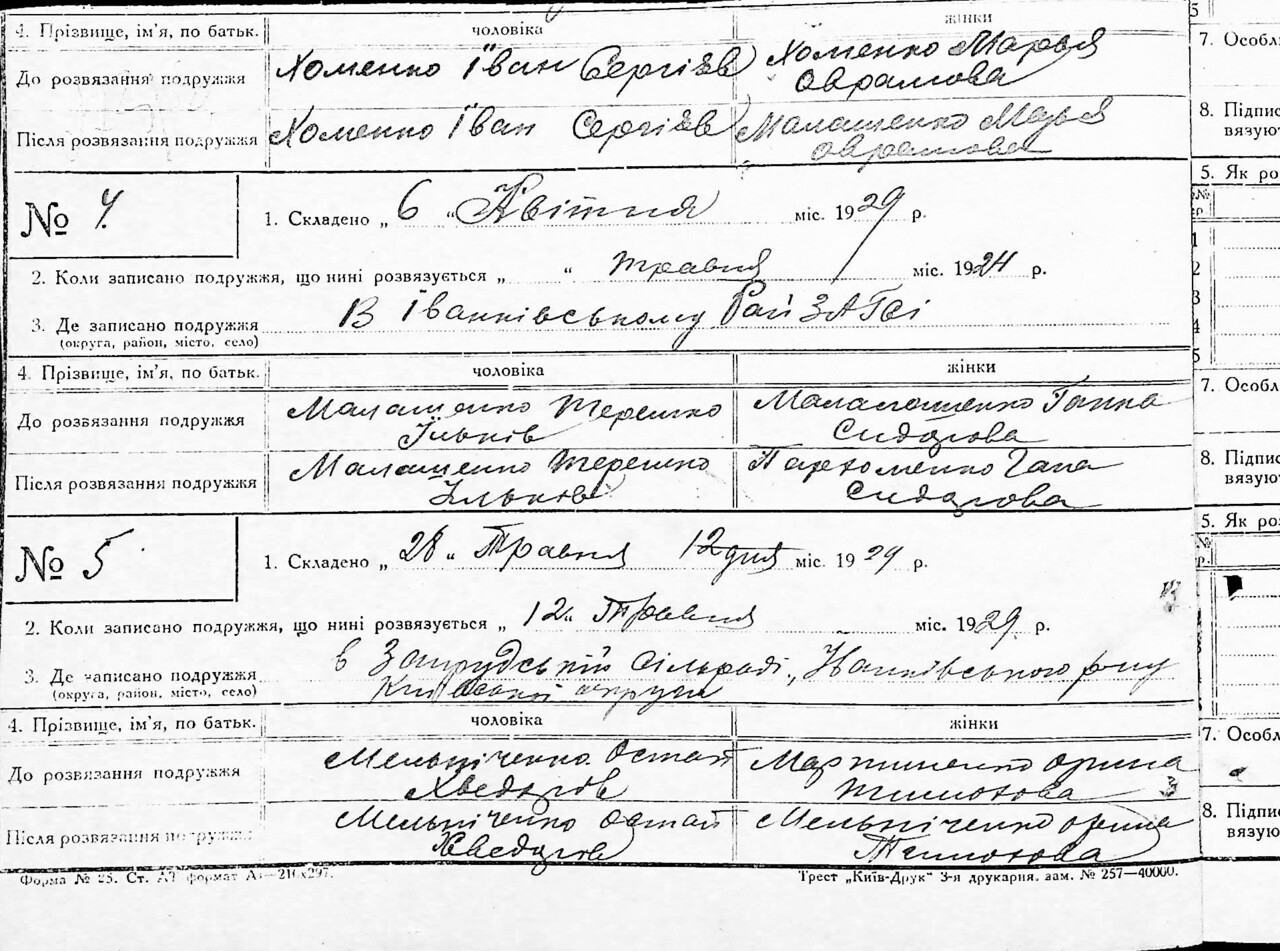 4. Прізвище, ім'я, по батьк. чоловіка жінки
До розвязання подружжя Хоменко Іван Сергіїв Хоменко Марья
Оврамова
Після розвязання подружжя Хоменко Іван Сергіїв Малашенко Марья
Оврамова
№ 4. 1. Складено „ 6 “ Квітня міс. 1929 р.
2. Коли записано подружжя, що нині розвязується „ “ травня міс. 1924 р.
3. Де записано подружжя В Іванківському Рай ЗАГсі
(округа, район, місто, село)
4. Прізвище, ім'я, по батьк. чоловіка жінки
До розвязання подружжя Малашенко Терешко Маламошенко Ганна
Ільків Сидорова
Після розвязання подружжя Малашенко Терешко Пархоменко Гапа
Ільков Сидорова
№ 5 1. Складено „ 28 “ Травня 12 дня міс. 1929 р.
2. Коли записано подружжя, що нині розвязується „ 12 “ Травня міс. 1929 р.
3. Де записано подружжя в Запрудській сільраді, Іванківського р-ну
(округа, район, місто, село) Київської округи
4. Прізвище, ім'я, по батьк. чоловіка жінки
До розвязання подружжя Мельніченко Остап Мартиненко Орина
Хведорів Тимохова
Після розвязання подружжя Мельніченко Остап Мельніченко Орина
Хведорів Тимохова
Форма № 25. Ст. А7 формат А4—210х297. Трест „Київ-Друк“ 3-я друкарня, зам. № 257—40000.
5
7. Особл
8. Підпис
вязую
5. Як ро
№
1
2
3
4
5
7. Особл
8. Підпис
вязую
5. Як роз
№
7. Особл
8. Підпи
вязую